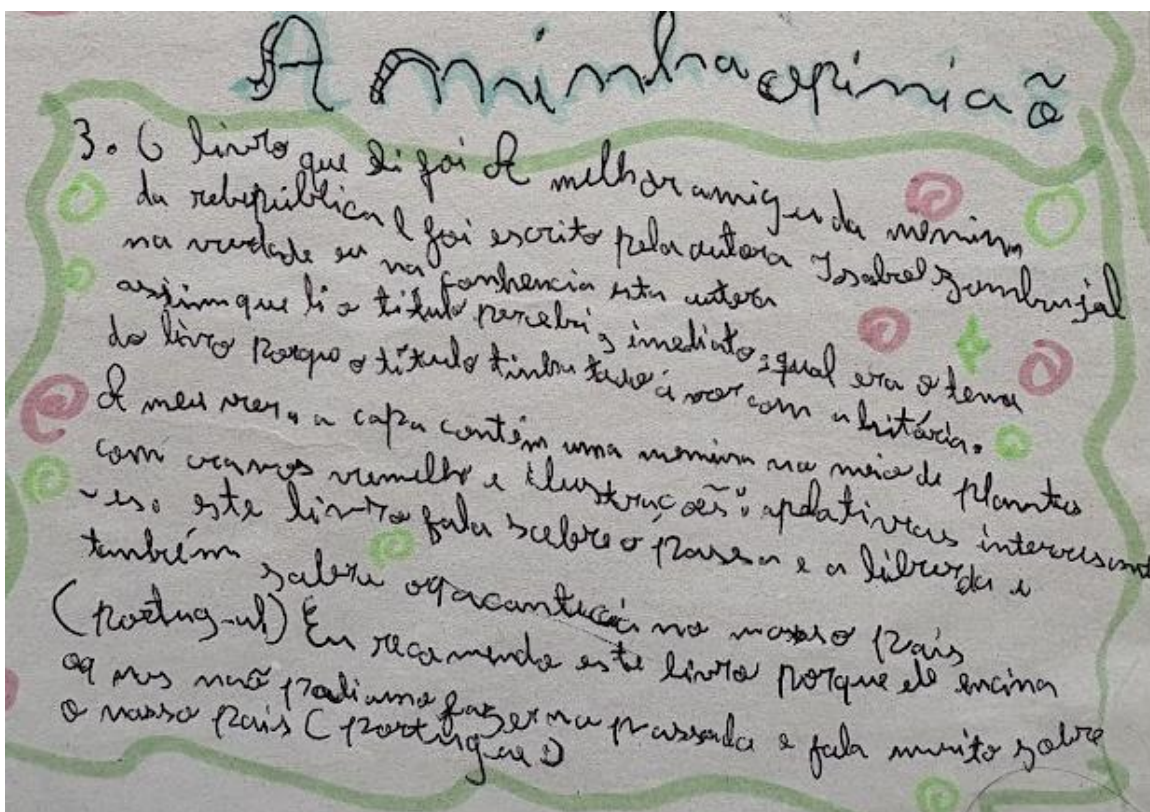 A minha opiniaõ
3. O livro que li foi A melhor amiga da menina
da rebepública e foi escrito pela autora Isabel Zambujal
na verdade eu na conhencia esta autora
assim que li o título percebi, imediato, qual era o tema
do livro Porque o título tinha tudo á ver com a história.
A meu ver, a capa contém uma menina no meio de plantas
com cravos vermelho e ilustrações apelativas interessant
-es. este livro fala sobre o passa e a liberda e
também sobre o no nosso País
(Portugal) Eu recomendo este livro porque ele encina
oq nos naõ podiamo fazer no passado e fala muito sobre
o nosso País (Portugal)